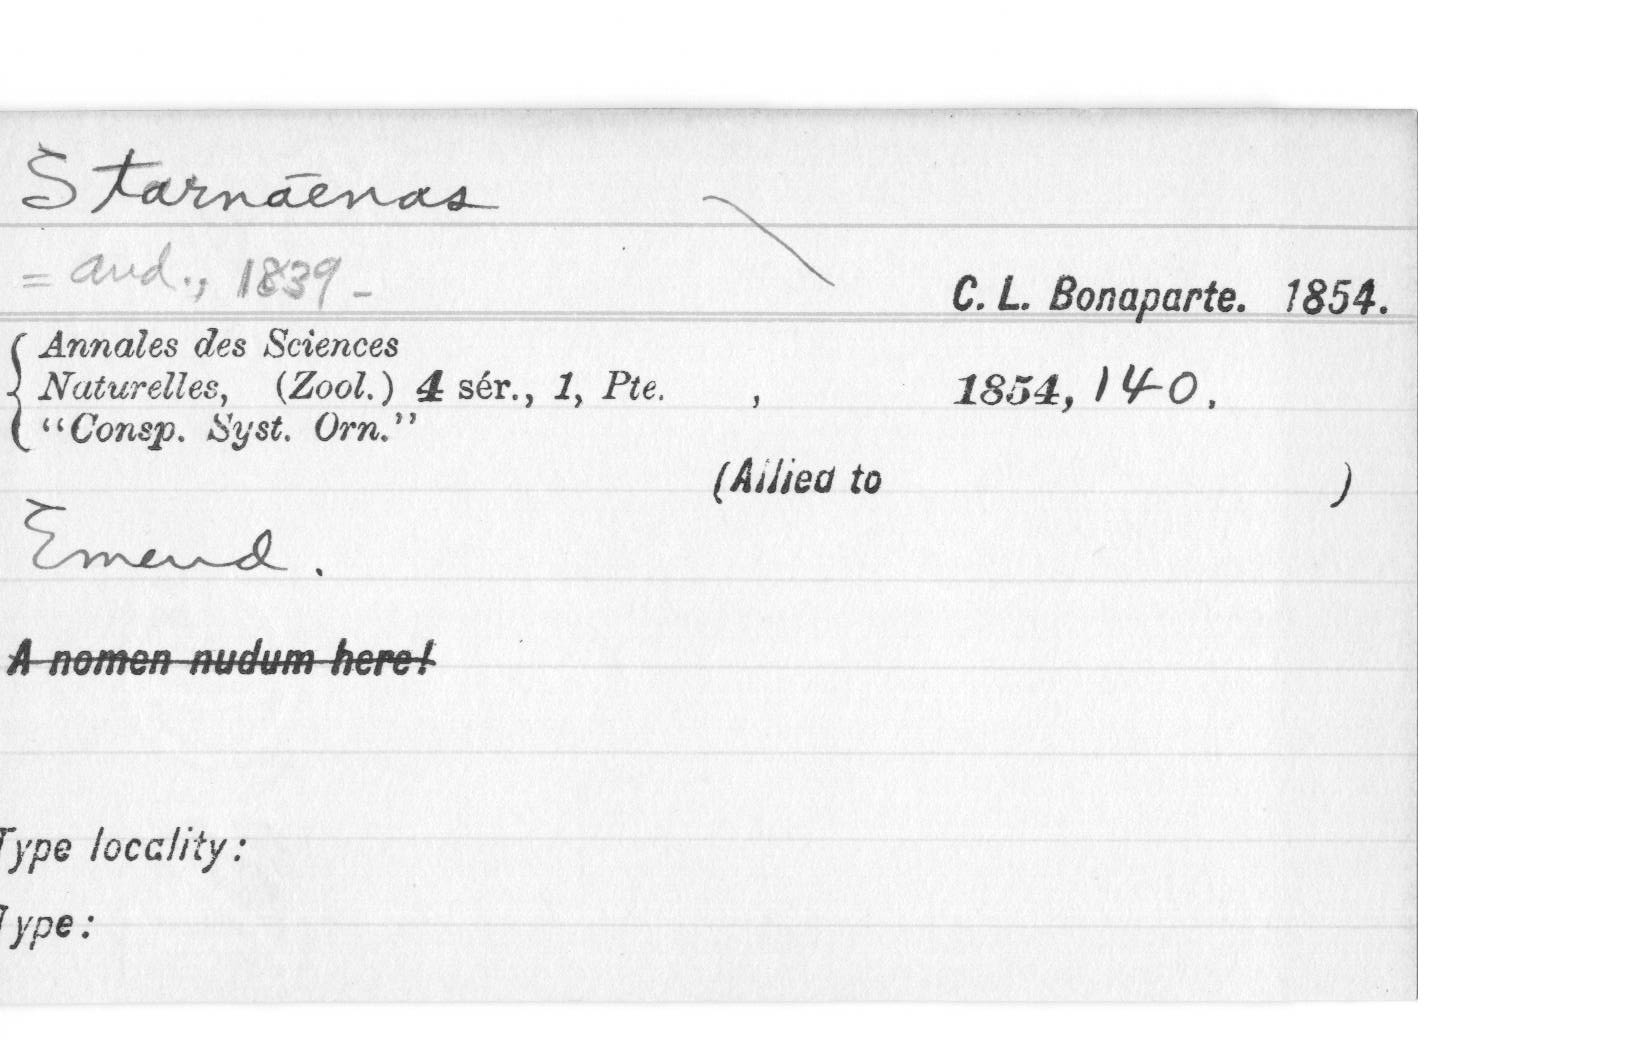 Starnāenas
= Aud., 1839 -
C. L. Bonaparte. 1854.
Annales des Sciences
Naturelles, (Zool.) 4 sér., 1, Pte. , 1854, 140.
"Consp. Syst. Orn."
(Allied to )
Emend.
A nomen nudum here!
Type locality:
Type: